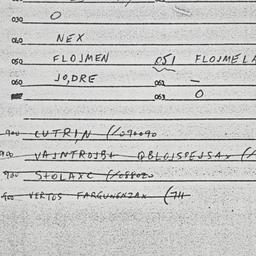 030 O
040 NEX
050 FLOJMEN 051 FLOJMELA
060 JO,DRE 052 —
053 O
900 CUTRIN (/090090
900 VAJNTROJB+ QBLOJSPEJSAX (/
900 STOLAXC (/088020
900 VERTOS FARGUNENZAX (74